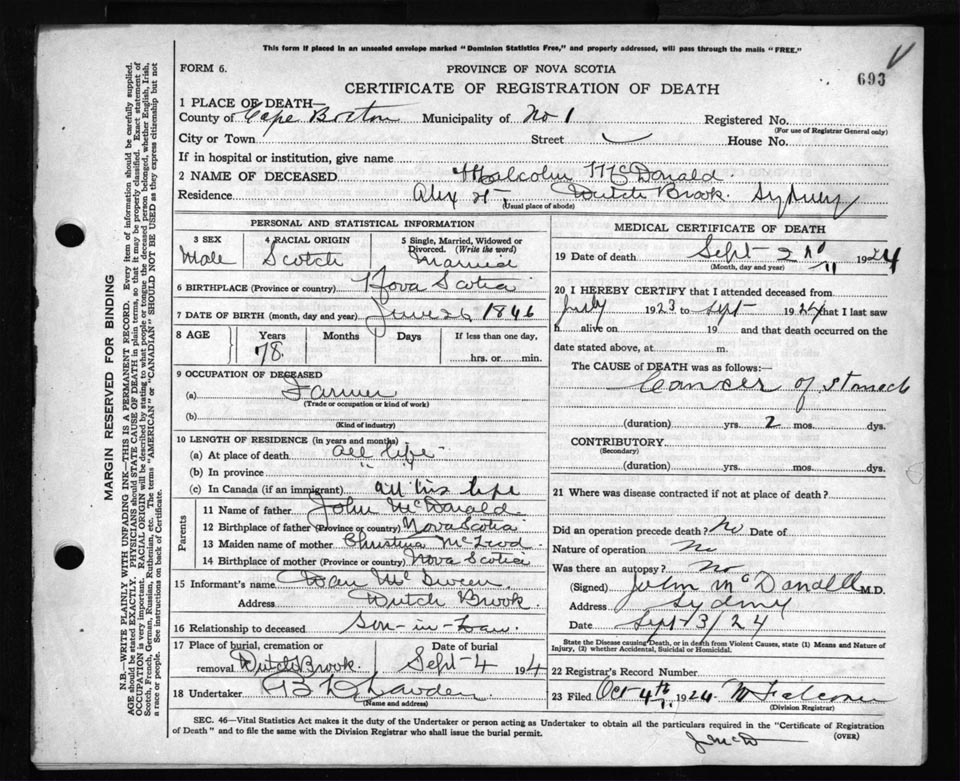 This form if placed in an unsealed envelope marked "Dominion Statistics Free," and properly addressed, will pass through the mails "FREE."
FORM 6.
PROVINCE OF NOVA SCOTIA
693
CERTIFICATE OF REGISTRATION OF DEATH
1 PLACE OF DEATH—
County of Cape Breton Municipality of No 1 Registered No.
(For use of Registrar General only)
City or Town Street House No.
If in hospital or institution, give name
2 NAME OF DECEASED Malcolm McDonald
Residence Alex St, Dutch Brook. Sydney
(Usual place of abode)
PERSONAL AND STATISTICAL INFORMATION
3 SEX Male
4 RACIAL ORIGIN Scotch
5 Single, Married, Widowed or Divorced. (Write the word) Married
6 BIRTHPLACE (Province or country) Nova Scotia
7 DATE OF BIRTH (month, day and year) June 26 1846
8 AGE Years Months Days If less than one day,
78 hrs. or min.
9 OCCUPATION OF DECEASED
(a) Farmer
(Trade or occupation or kind of work)
(b)
(Kind of industry)
10 LENGTH OF RESIDENCE (in years and months)
(a) At place of death all life
(b) In province " "
(c) In Canada (if an immigrant) all his life
Parents
11 Name of father John McDonald
12 Birthplace of father (Province or country) Nova Scotia
13 Maiden name of mother Christina McLeod
14 Birthplace of mother (Province or country) Nova Scotia
15 Informant's name Dan McSween
Address Dutch Brook.
16 Relationship to deceased Son-in-Law.
17 Place of burial, cremation or removal Dutch Brook. Date of burial Sept-4 1924
18 Undertaker
(Name and address)
MEDICAL CERTIFICATE OF DEATH
19 Date of death Sept- 2nd 1924
(Month, day and year)
20 I HEREBY CERTIFY that I attended deceased from
July 1923 to Sept- 1924 that I last saw
h alive on 19 and that death occurred on
date stated above, at m.
The CAUSE of DEATH was as follows:
Cancer of stomach
(duration) yrs. 2 mos. dys.
CONTRIBUTORY
(Secondary)
(duration) yrs. mos. dys.
21 Where was disease contracted if not at place of death?
Did an operation precede death? No Date of
Nature of operation No
Was there an autopsy? No
(Signed) John McDonald M.D.
Address Sydney
Date Sept 3/24
State the Disease causing Death, or in death from Violent Causes, state (1) Means and Nature of Injury, (2) whether Accidental, Suicidal or Homicidal.
22 Registrar's Record Number
23 Filed Oct 4th 1924
(Division Registrar)
SEC. 46—Vital Statistics Act makes it the duty of the Undertaker or person acting as Undertaker to obtain all the particulars required in the "Certificate of Registration
of Death" and to file the same with the Division Registrar who shall issue the burial permit.
(OVER)
MARGIN RESERVED FOR BINDING
N.B.—WRITE PLAINLY WITH UNFADING INK—THIS IS A PERMANENT RECORD. Every item of information should be carefully supplied.
AGE should be stated EXACTLY. PHYSICIANS should STATE CAUSE OF DEATH in plain terms, so that it may be properly classified. Exact statement of
OCCUPATION is very important. RACIAL ORIGIN will be described by stating to what people or tongue the deceased person belonged, whether English, Irish,
Scotch, French, German, Russian, Ruthenian, etc. The terms "AMERICAN" or "CANADIAN" SHOULD NOT BE USED as they express citizenship but not
a race or people. See instructions on back of Certificate.